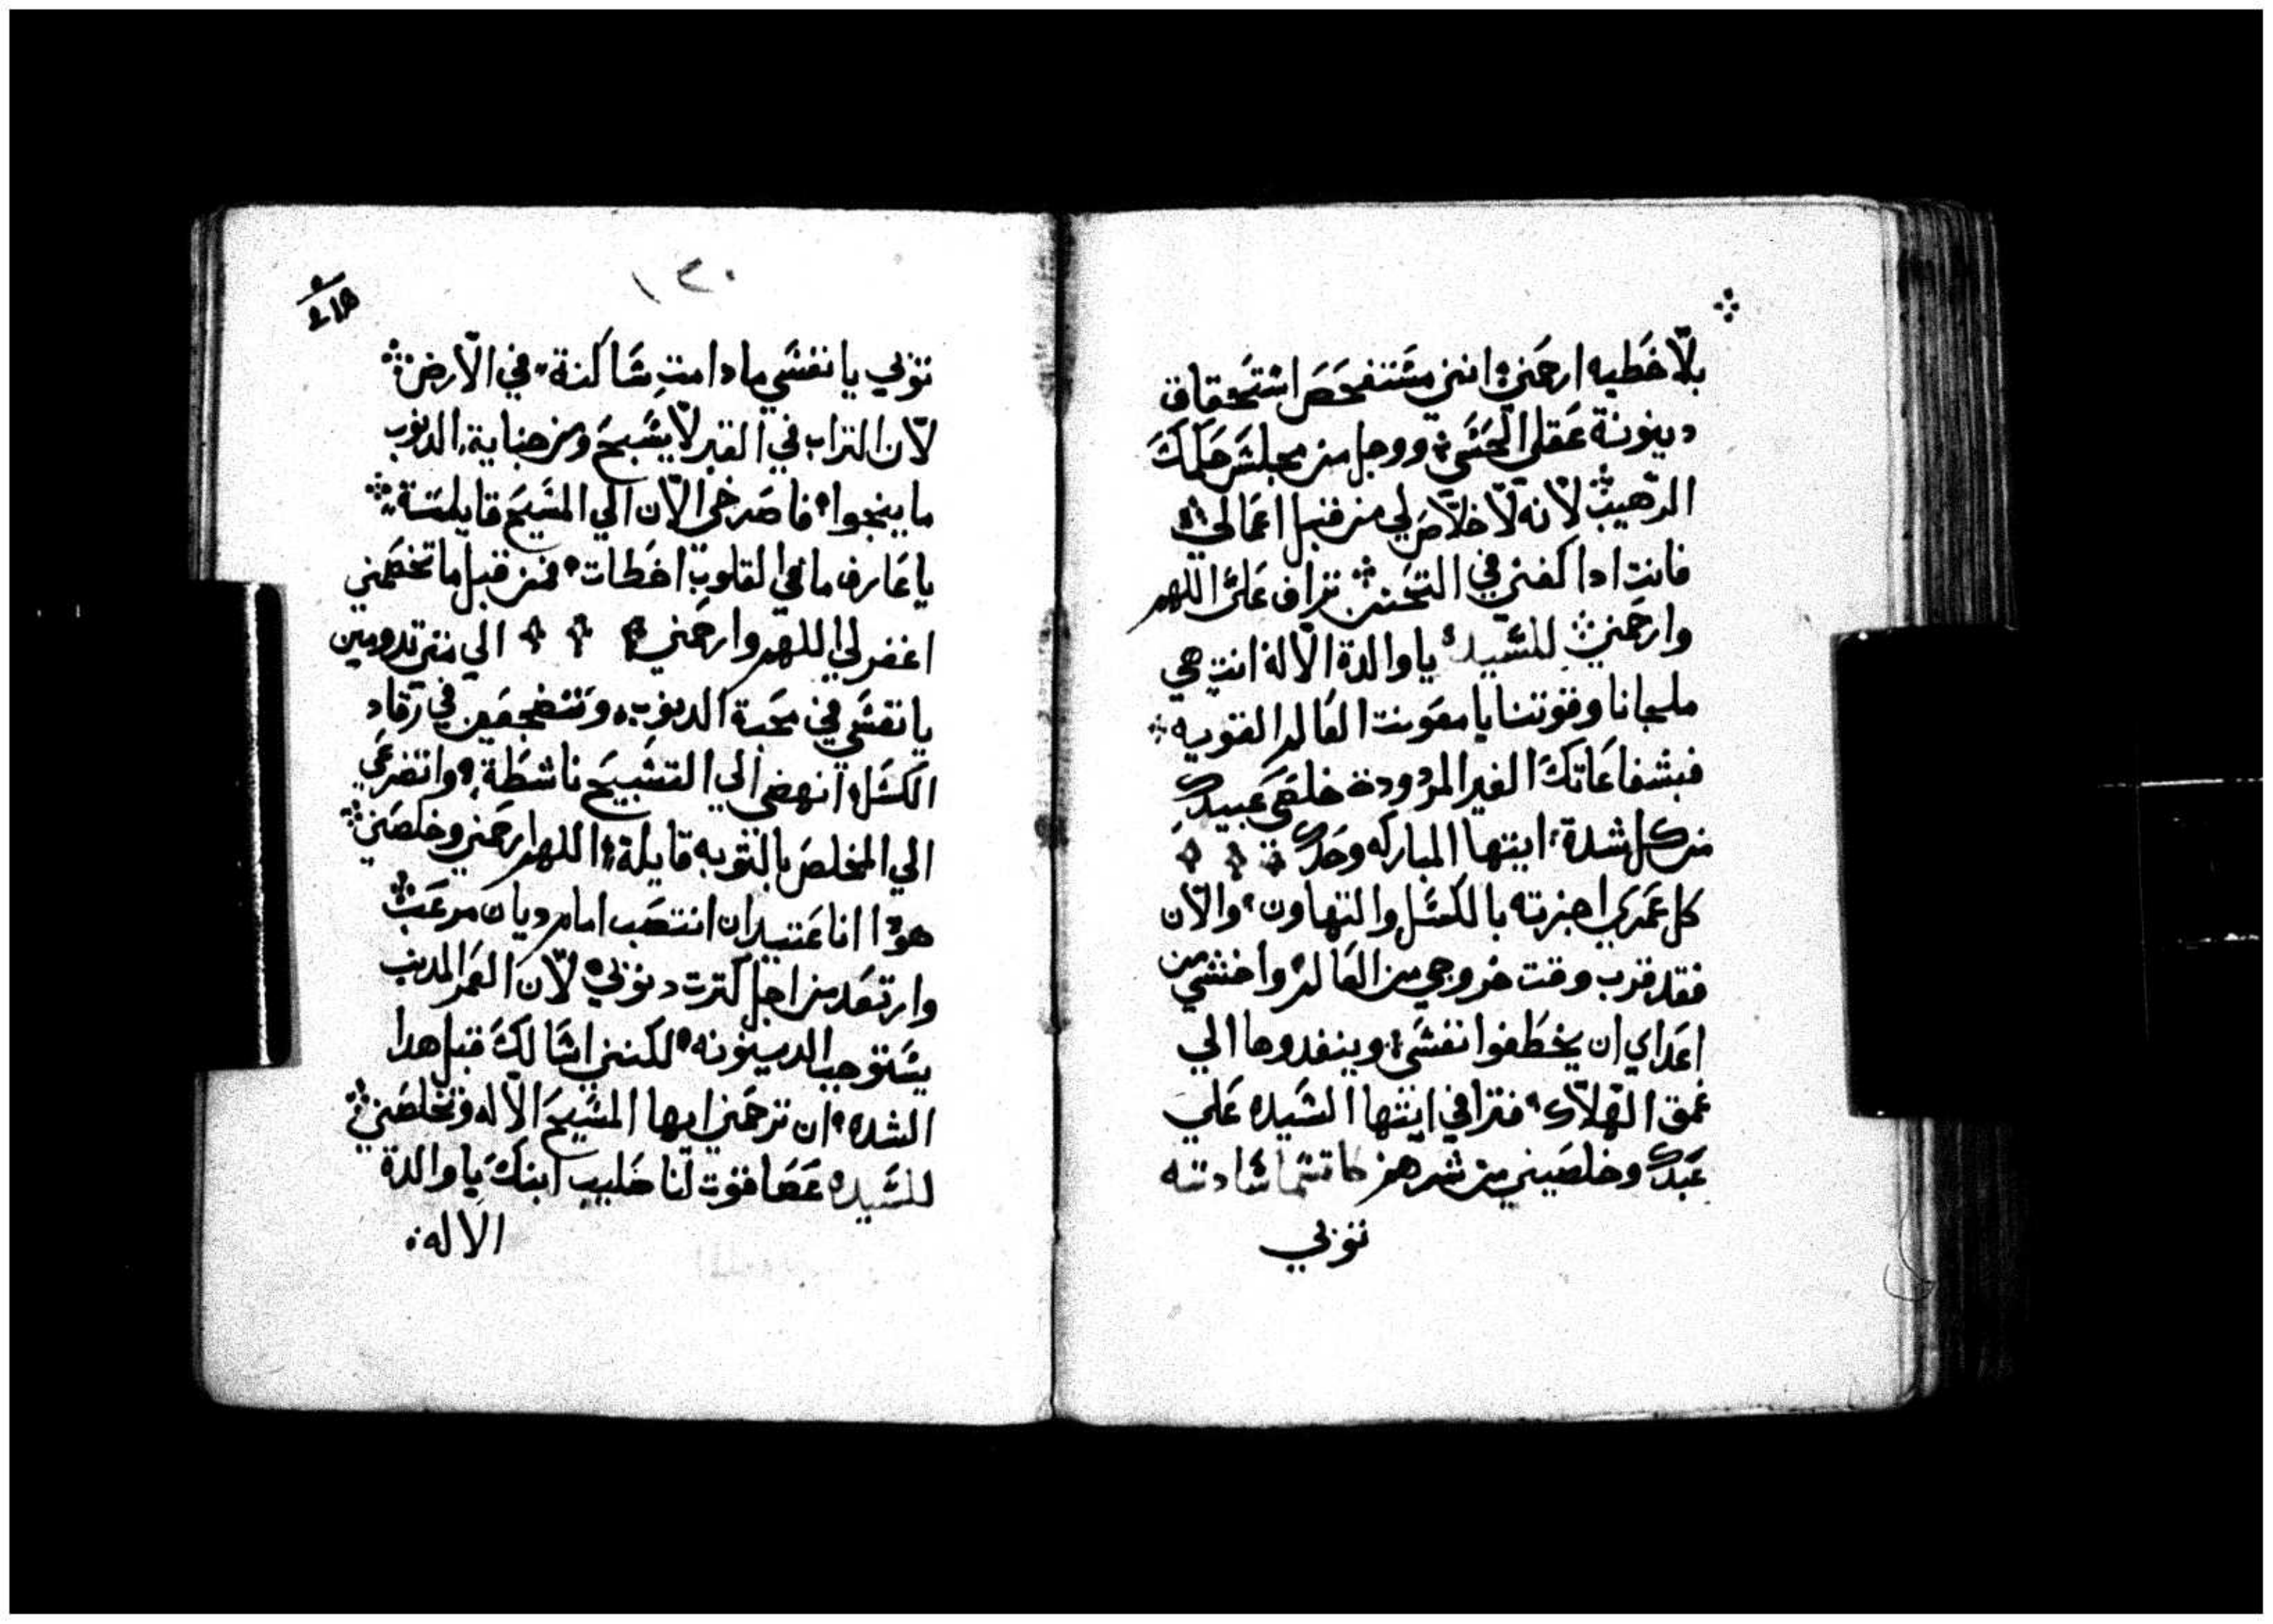 بلّا خَطيه ارحَمني؛ انني مشَتنفحَصَ اشتَحقاق
دينونة عَقلي الحَشَي؛ ووجل من مجلسَ حَكمكَ
الرهيب لانه لّا خلّاصَ لي من قبل اعَمالي؛
فانت ادا كفني في التحَنن تراف عَلىَّ اللهم
وارحَمني للسَّيده ياوالدة الاله انتِ هي
ملجانا وقوتنا يا معَونت العَالم القويه
فبشفاعَاتكَ الغير المرّدودة خلصَي عَبيدك
من كل شدة؛ ايتها المباركه وحَدك
كل عَمري اجزته بالكسَّل والتهاون؛ والّان
فقد قرب وقت خروجي من العَالم واخشي من
اعَداي ان يخطَفوا نفسَي؛ وينفدوها الي
عَمق الهّلّاك؛ فترافي ايتها السَّيده عَلي
عَبدك وخلصَيني من شرهم
توبي
١٢٠
توبي يا نفسَي مادامت سَاكنة في الّارض
لّان التراب في القبر لّا يسَّبحَ ومن جناية الدنوب
ما ينجوا؛ فاصَرخي الّان الي المسَّيحَ قايلة
يا عَارف ما في القلوب اخطَات؛ فمن قبل ما تخصَمني
اغفر لي اللهم وارحَمني الي متي تدومين
يا نفسَي في محَبة الدنوب؛ وتنضجعَين في رَقاد
الكسَّل؛ انهضي الي التسَّبيحَ ناشطَة؛ واتضرعَي
الي المخلصَ بالتوبه قايلة؛ اللهم ارحَمني وخلصَني
هودا انا عَتيد ان انتصَب امام ديان مرعَب
وارتعَد من اجل كترت دنوبي لّان العَمر المدنب
يسَّتوجب الدينونه؛ لكنني اسَالكَ قبل هدا
الشده؛ ان ترحَمني ايها المسَّيحَ الّاله وتخلصَني
للسَّيده عَصَا قوت لنا صَليب ابنكَ يا والدة
الاله